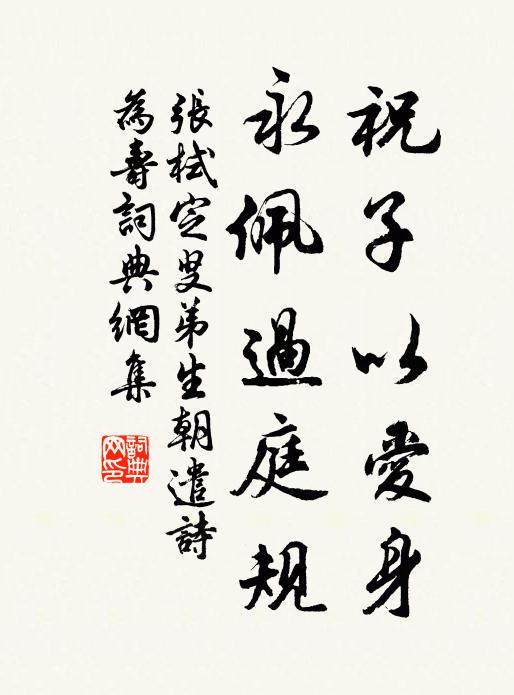 祝子以愛身
永佩過庭規
張栻定叟弟生朝遣詩
為壽詞典網集
詞典网印